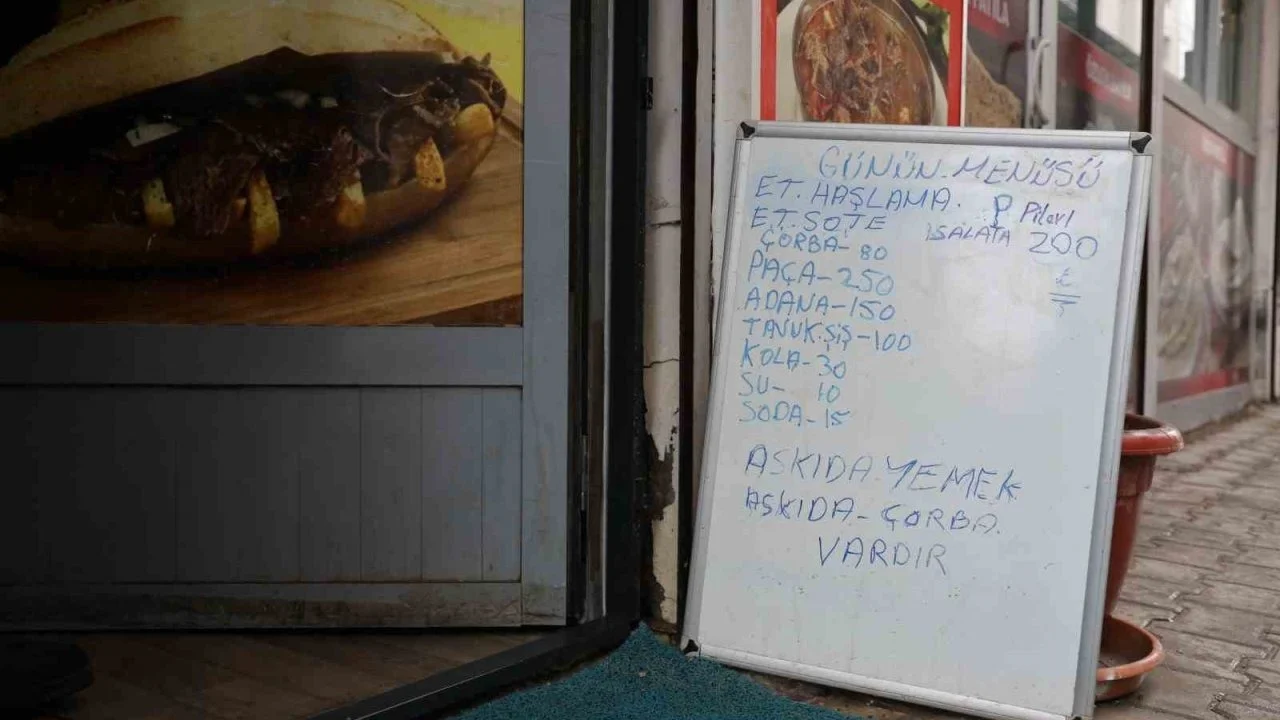 GÜNÜN-MENÜSÜ
ET. HAŞLAMA. P Pilavl
ET.SOTE SALATA 200
ÇORBA- 80
₺
PAÇA-250
ADANA-150
TAVUK.ŞİŞ-100
KOLA-30
SU- 10
SODA-15
ASKIDA YEMEK
ASKIDA-ÇORBA.
VARDIR